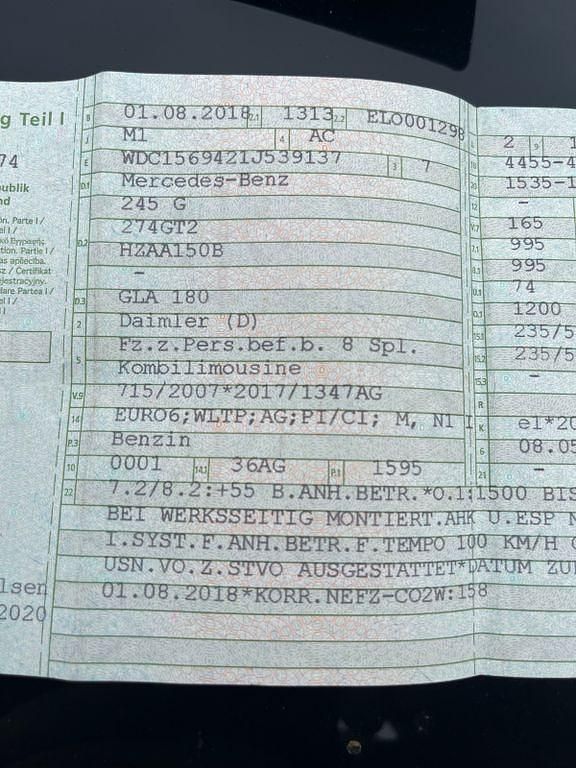 g Teil I
74
publik
nd
Parte I /
el I /
tion. Partie I /
as apliecība.
sz / Certifikat
ejestracyjny.
lare Partea I /
el I /
lsen
2020
B 01.08.2018 2.1 1313 2.2 ELO001298
J M1 4 AC
E WDC1569421J539137 3 7
D.1 Mercedes-Benz
245 G
274GT2
D.2 HZAA150B
-
D.3 GLA 180
2 Daimler (D)
Fz.z.Pers.bef.b. 8 Spl.
5 Kombilimousine
V.9 715/2007*2017/1347AG
14 EURO6;WLTP;AG;PI/CI; M, N1 I
P.3 Benzin
10 0001 14.1 36AG P.1 1595
22 7.2/8.2:+55 B.ANH.BETR.*O.1:1500 BIS
BEI WERKSSEITIG MONTIERT.AHK U.ESP
I.SYST.F.ANH.BETR.F.TEMPO 100 KM/H
USN.VO.Z.STVO AUSGESTATTET*DATUM ZU
01.08.2018*KORR.NEFZ-CO2W:158
2 9 1
4455-4
1535-1
-
165
7.1 995
8.1 995
U.1 74
O.1 1200
15.1 235/5
15.2 235/5
15.3 -
R
K e1*20
6 08.05
21 -